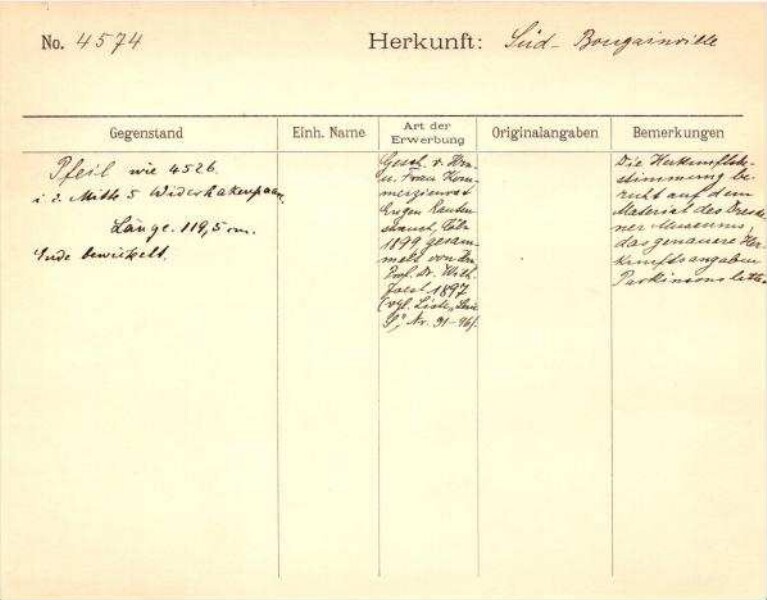 No. 4574
Herkunft: Süd-Bougainville
Gegenstand
Einh. Name
Art der Erwerbung
Originalangaben
Bemerkungen
Pfeil wie 4526.
i. d. Mitte 5 Widerhakenpaare
Länge. 119,5 cm.
Ende bewickelt.
Gesch. v. Hrn
u. Frau Kom-
merzienrat
Eugen Rauten-
strauch, Cöln
1899, gesam-
melt von Hrn
Prof. Dr. Wilh.
Joest 1897
(vgl. Liste,
S", Nr. 31-96).
Die Herkunftsbe-
stimmung be-
ruht auf dem
Material des Dresd-
ner Museums,
das genauere Her-
kunftsangaben
Parkinsons